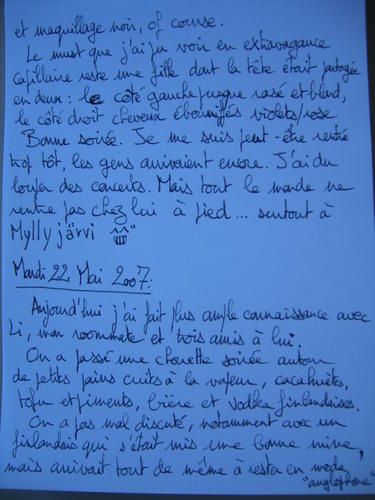 et maquillage noir, of course.
Le must que j'ai pu voir en extravagance
capillaire reste une fille dont la tête était partagée
en deux : le côté gauche presque rasé et blond,
le côté droit cheveux ébouriffés violets/rose
Bonne soirée. Je me suis peut-être rentré
trop tôt, les gens arrivaient encore. J'ai du
louper des concerts. Mais tout le monde ne
rentre pas chez lui à pied... surtout à
Myllyjärvi ^^"
Mardi 22 Mai 2007:
Aujourd'hui j'ai fait plus ample connaissance avec
Li, mon roommate et trois amis à lui.
On a passé une chouette soirée autour
de petits pains cuits à la vapeur, cacahuètes,
tofu et piments, bière et vodka finlandaises.
On a pas mal discuté, notamment avec un
finlandais qui s'était mis une bonne mine,
mais arrivait tout de même à rester en mode
"anglophone"